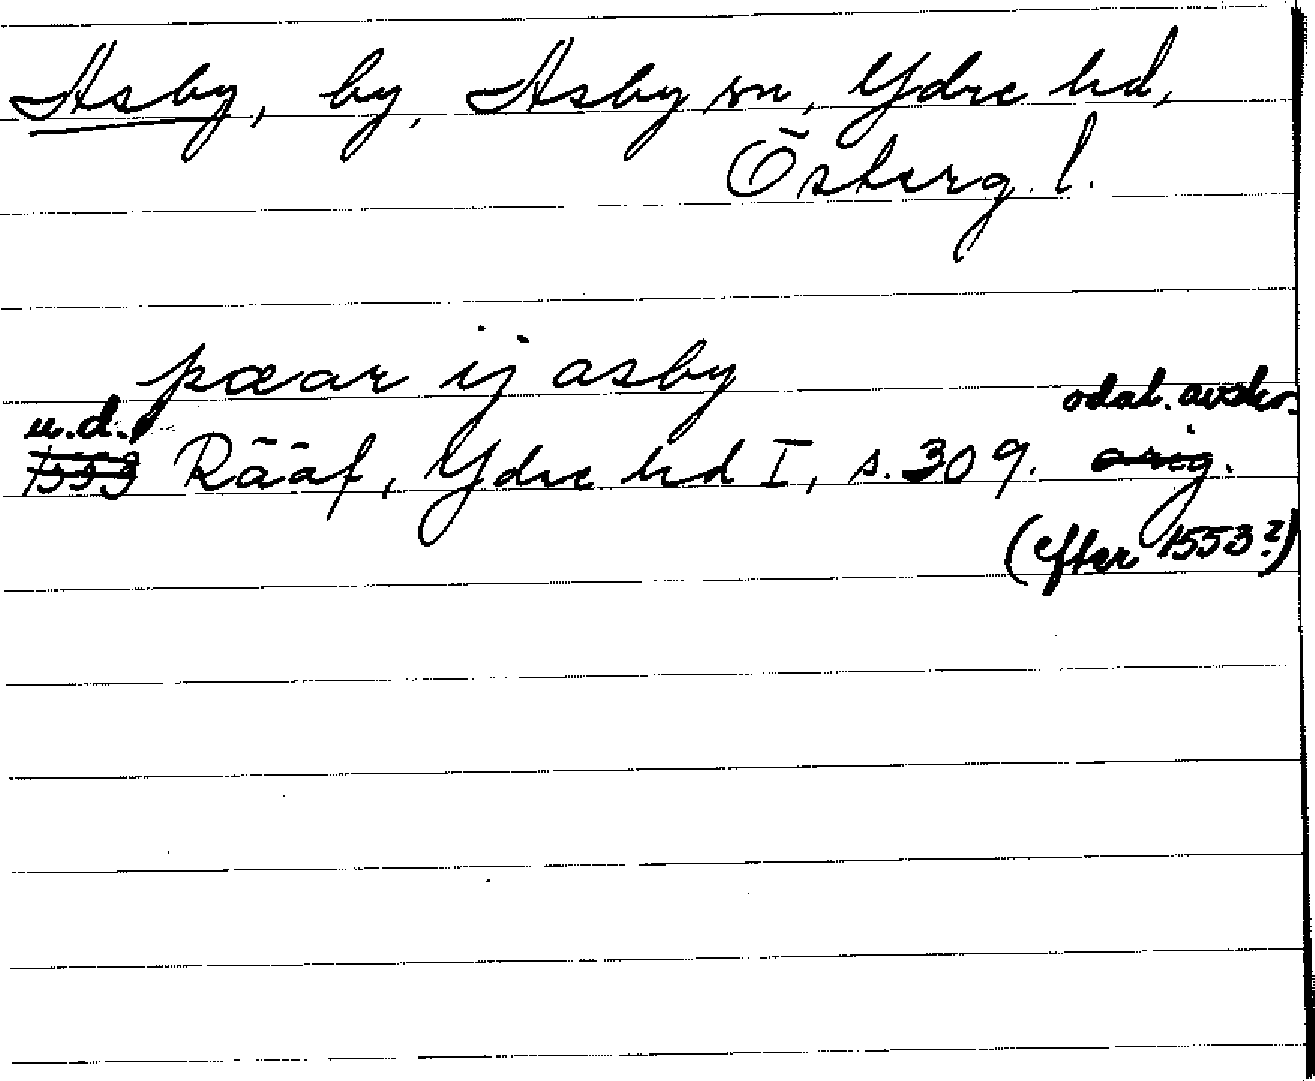 Asby, by, Asby sn, Ydre hd,
Österg. l.
pæar ij asby
odat. avskr.
u.d.
1553 Rääf, Ydre hd I, s. 309. orig.
(efter 1553?)